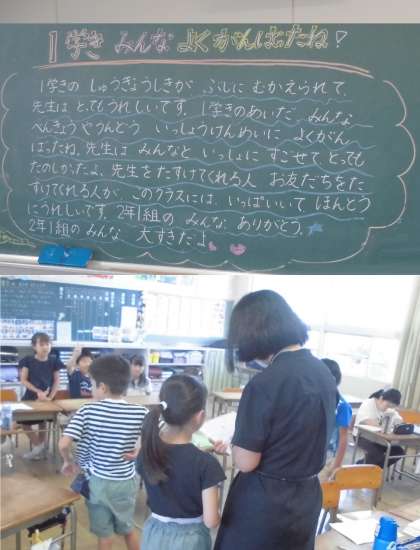 1学き みんな よくがんばったね!
1学きの しゅうぎょうしきが ぶじに むかえられて、
先生は とってもうれしいです。1学きのあいだ、みんな
べんきょうやうんどう いっしょうけんめいに よくがん
ばったね。先生は みんなと いっしょに すごせて とっても
たのしかったよ。先生を たすけてくれる人 お友だちをた
すけてくれる人が このクラスには、いっぱいいて ほんとう
にうれしいです。2年1組の みんな ありがとう。
2年1組の みんな 大すきだよ